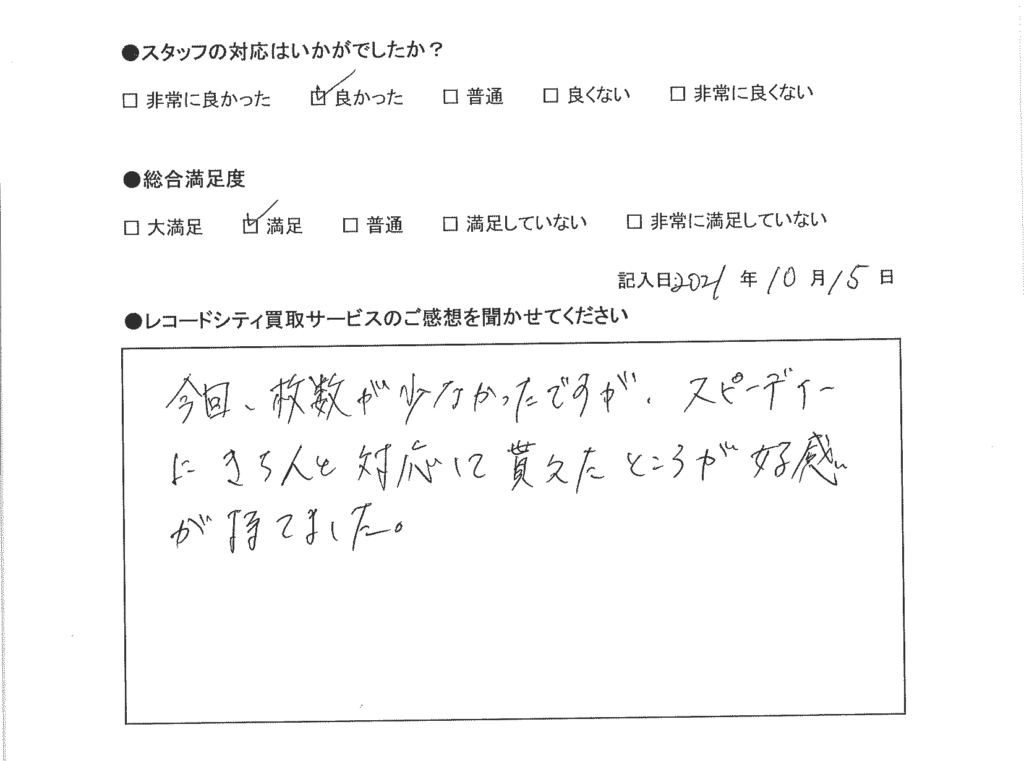 ●スタッフの対応はいかがでしたか？
□ 非常に良かった ☑ 良かった □ 普通 □ 良くない □ 非常に良くない
●総合満足度
□ 大満足 ☑ 満足 □ 普通 □ 満足していない □ 非常に満足していない
記入日2021 年 10 月 15 日
●レコードシティ買取サービスのご感想を聞かせてください
今回、枚数が少なかったですが、スピーディー
にきちんと対応して貰えたところが好感
が持てました。